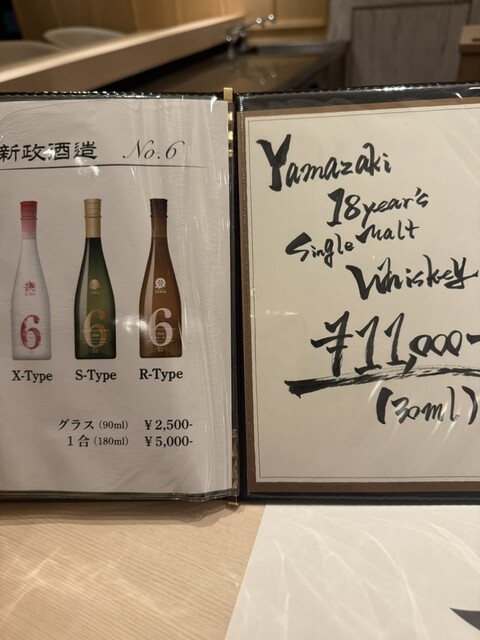 新政酒造 No.6
6 6 6
X-Type S-Type R-Type
グラス(90ml) ¥2,500-
1合(180ml) ¥5,000-
Yamazaki
18year's
Single Malt
Whiskey
¥11,000-
(30ml)